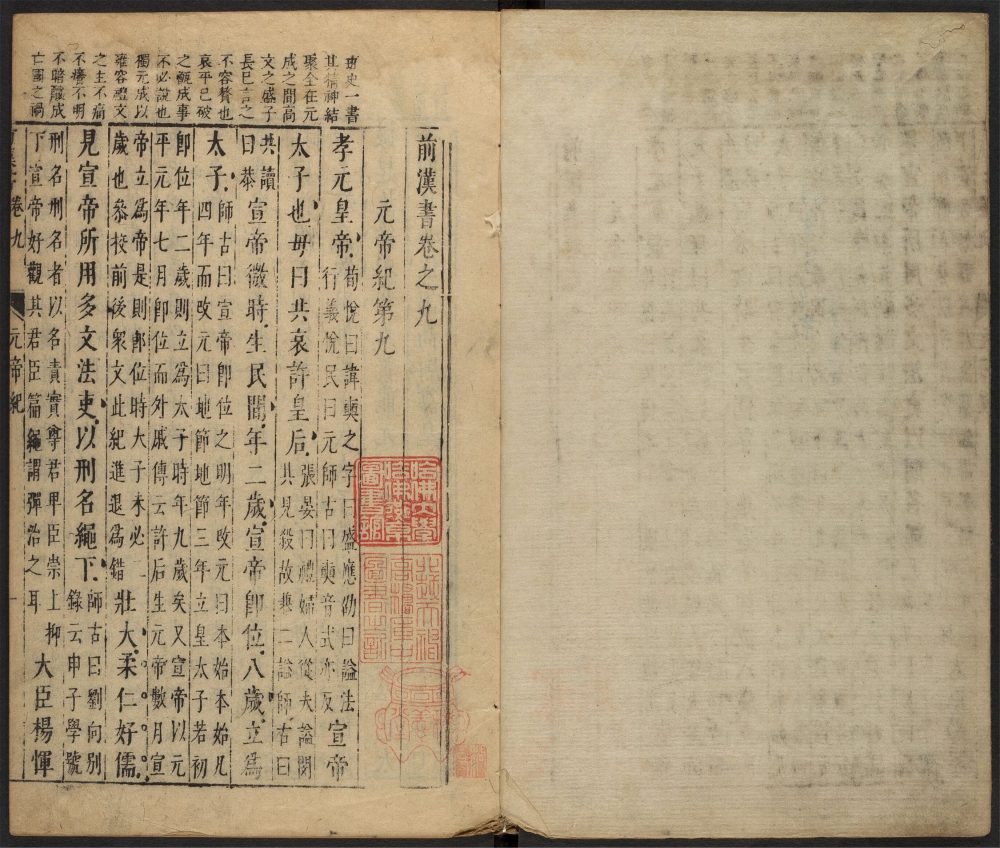 史一書
其精神結
聚全在元
成之間高
文之盛子
長已言之
不容贅也
哀平已破
之甑成事
不必說也
獨元成以
雍容禮文
之主不痛
不癢不明
不暗釀成
亡國之禍
前漢書卷之九
元帝紀第九
孝元皇帝荀悅曰諱奭之字曰盛應劭曰謚法
行義悅民曰元師古曰奭音式亦反宣帝
太子也母曰共哀許皇后張晏曰禮婦人從夫謚閔
其見殺故兼二謚師古曰
共讀
曰恭宣帝微時生民間年二歲宣帝即位八歲立爲
太子師古曰宣帝即位之明年改元曰本始本始凡
四年而改元曰地節地節三年立皇太子若初
即位年二歲則立爲太子時年九歲矣又宣帝以元
平元年七月即位而外戚傳云許后生元帝數月宣
帝立爲帝是則即位時太子未必二
歲也叅校前後衆文此紀進退爲錯壯大柔仁好儒
見宣帝所用多文法吏以刑名繩下師古曰劉向別
錄云申子學號
刑名刑名者以名責實尊君卑臣崇上抑
下宣帝好觀其君臣篇繩謂彈治之耳大臣楊惲
卷九
元帝紀
一
哈佛大學
哈佛燕京
圖書館